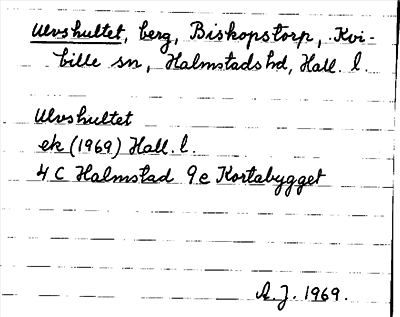 Ulvshultet, berg, Biskopstorp, Kvi-
bille sn, Halmstads hd, Hall. l.
Ulvshultet
ek (1969) Hall. l.
4 C Halmstad 9 e Kortabygget
A. J. 1969.